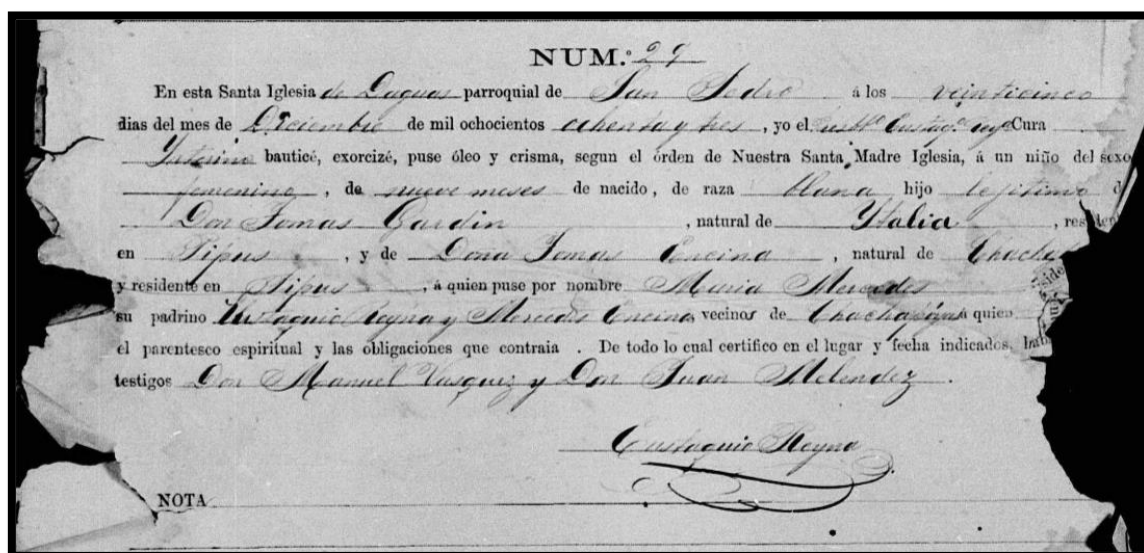 NUM.º 29
En esta Santa Iglesia de Daguas parroquial de San Pedro á los veinticinco
dias del mes de Diciembre de mil ochocientos ochenta y tres, yo el Cura
Ynterino bauticé, exorcizé, puse óleo y crisma, segun el órden de Nuestra Santa Madre Iglesia, á un niño del sexo
femenino, de nueve meses de nacido, de raza blana hijo legitimo d
Don Tomas Gardin, natural de Ytalia, resident
en Tipus, y de Doña Tomas Encina, natural de Chacha
y residente en Tipus, á quien puse por nombre Maria Mercedes
su padrino Eustaquio Reyna y Mercedes Encina, vecinos de Chachapoyas á quien
el parentesco espiritual y las obligaciones que contraia . De todo lo cual certifico en el lugar y fecha indicados,
testigos Don Manuel Vasquez y Don Juan Melendez.
Eustaquio Reyna
NOTA